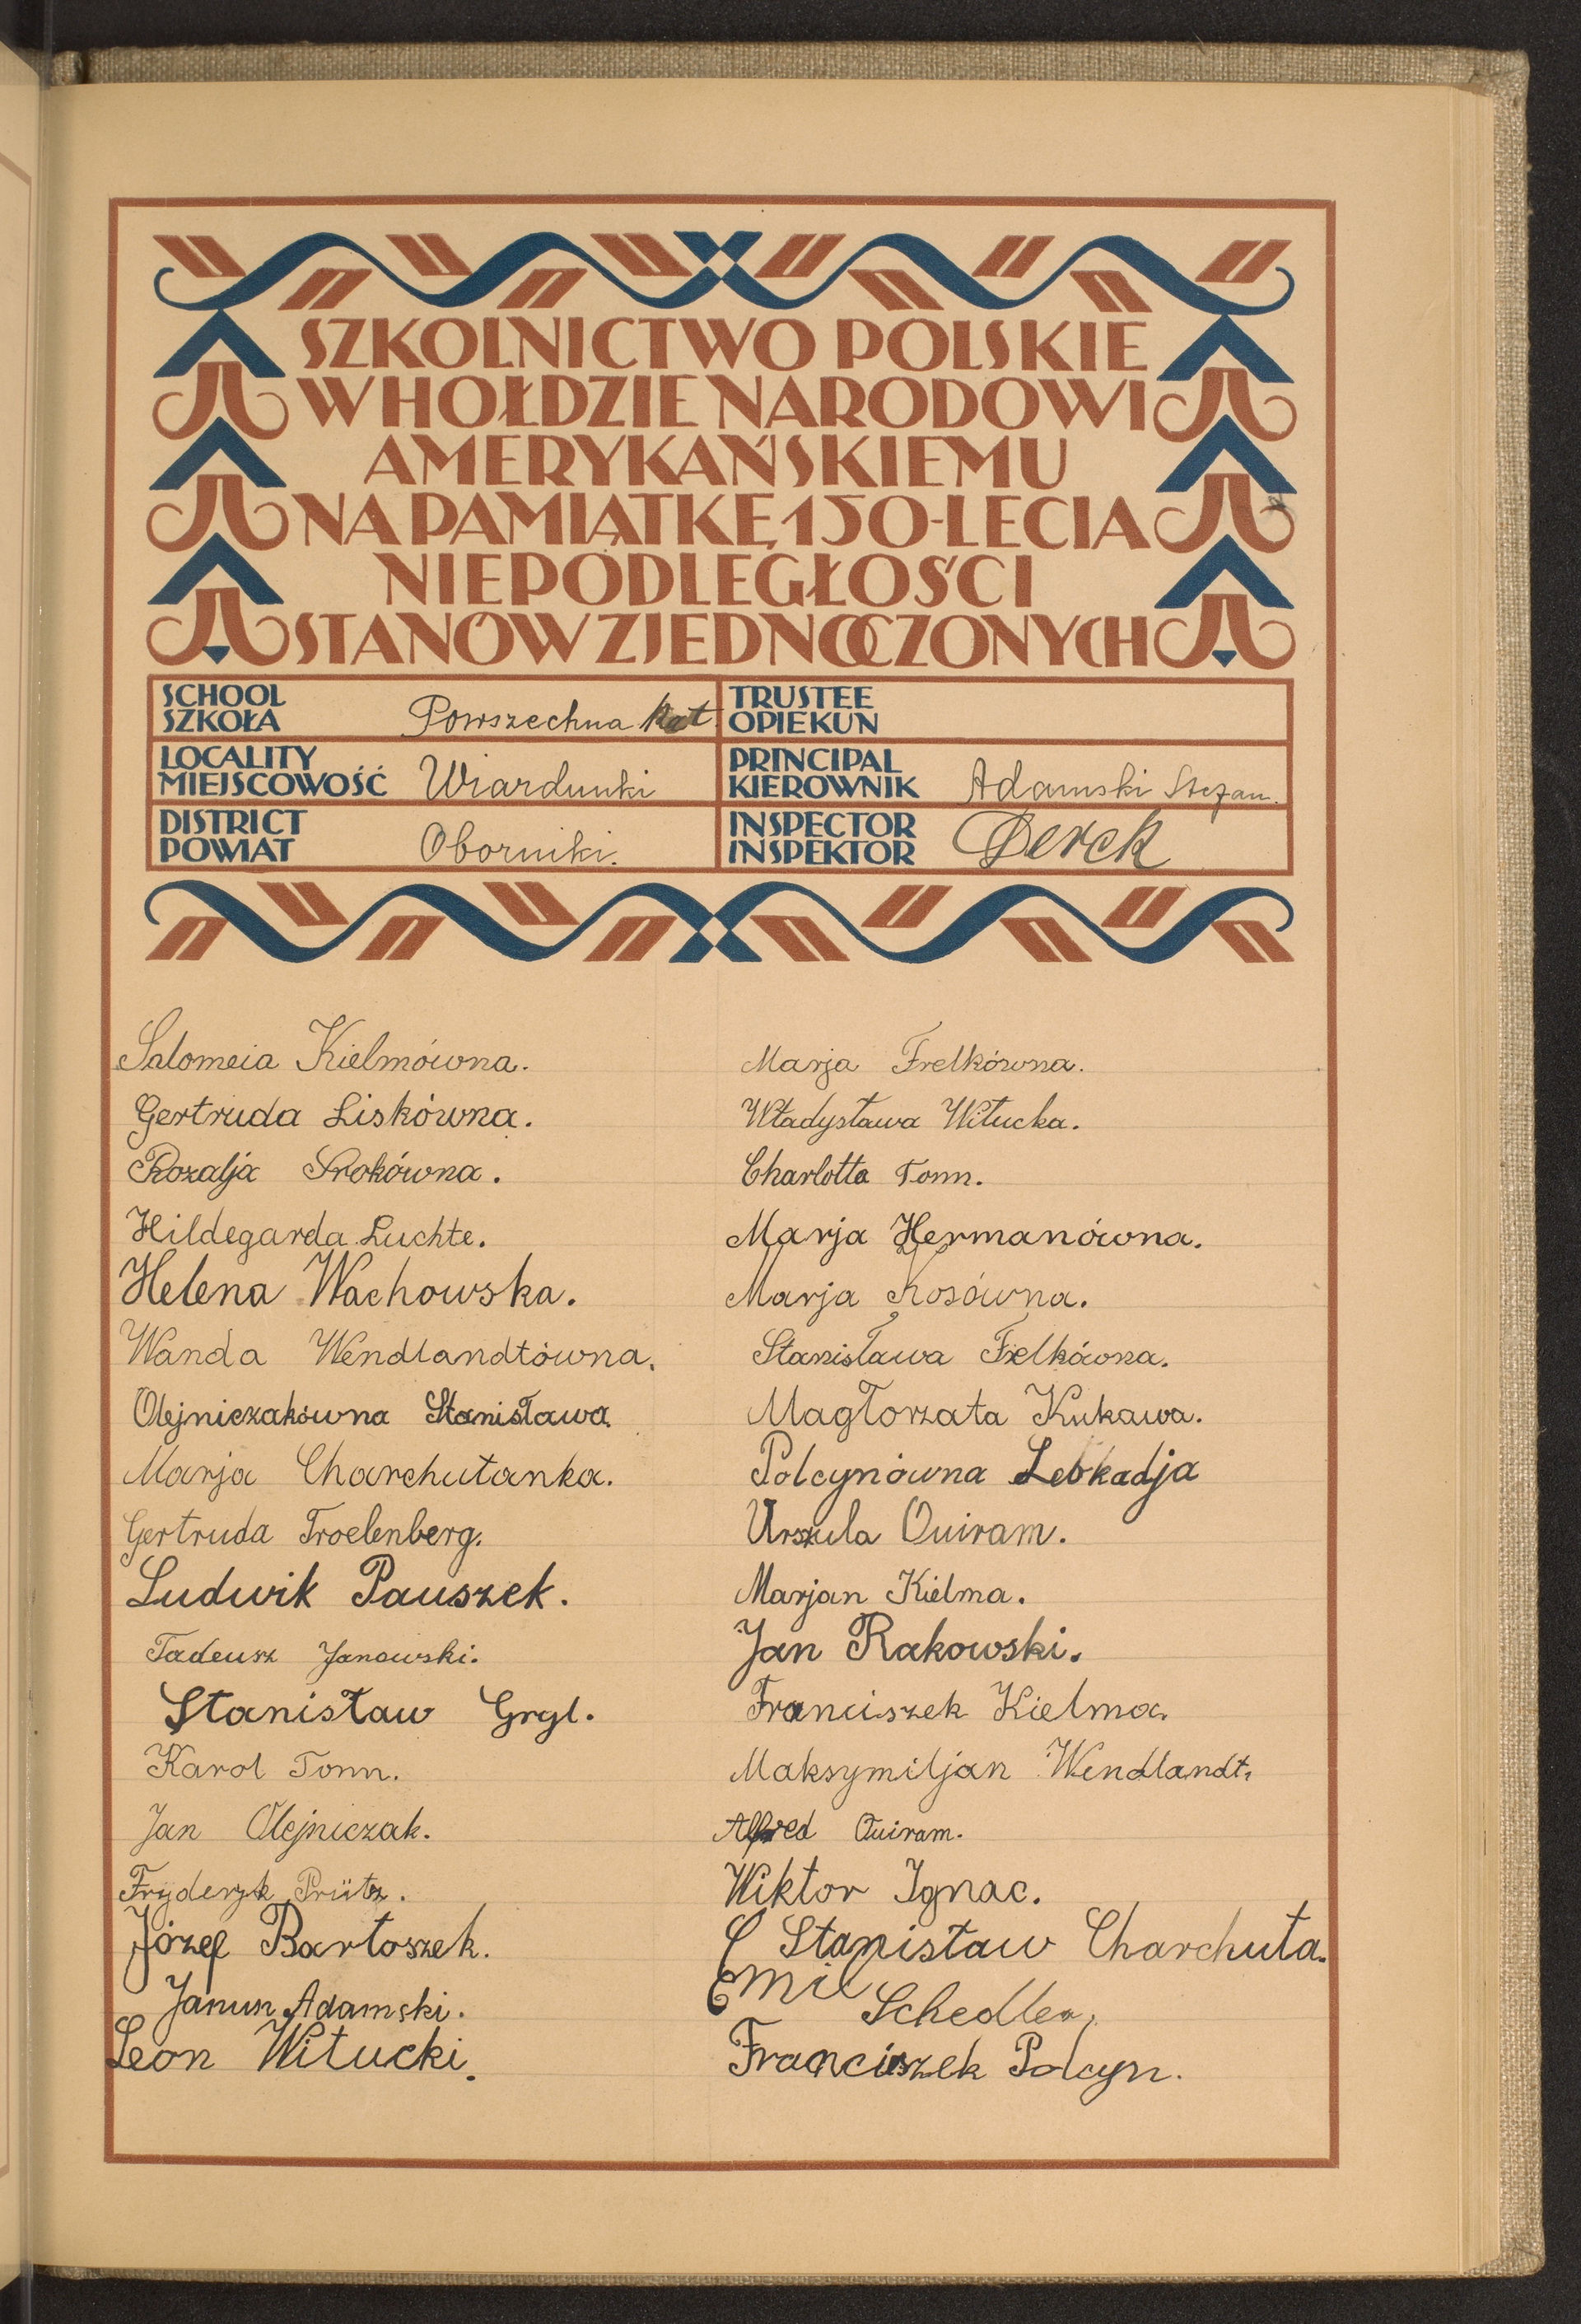 SZKOLNICTWO POLSKIE
W HOŁDZIE NARODOWI
AMERYKAŃSKIEMU
NA PAMIĄTKĘ 150-LECIA
NIEPODLEGŁOŚCI
STANÓW ZJEDNOCZONYCH
SCHOOL
SZKOŁA Powszechna kat.
TRUSTEE
OPIEKUN
LOCALITY
MIEJSCOWOŚĆ Wiardunki
PRINCIPAL
KIEROWNIK Adamski Stefan.
DISTRICT
POWIAT Oborniki.
INSPECTOR
INSPEKTOR Derek
Salomeia Kielmówna.
Gertruda Liskówna.
Rozalja Srokówna.
Hildegarda Luchte.
Helena Wachowska.
Wanda Wendlandtówna.
Olejniczakówna Stanisława.
Marja Charchutanka.
Gertruda Troelenberg.
Ludwik Pauszek.
Tadeusz Janowski.
Stanisław Grgl.
Karol Tonn.
Jan Olejniczak.
Fryderyk Prütz.
Józef Bartoszek.
Janun Adamski.
Leon Witucki.
Marja Frelkówna.
Władysława Witucka.
Charlotta Tonn.
Marja Hermanówna.
Marja Kosówna.
Stanisława Frelkówna.
Magłorzata Kukawa.
Polcynówna Leokadja
Urszula Quiram.
Marjan Kielma.
Jan Rakowski.
Franciszek Kielma.
Maksymiljan Wendlandt.
Alfred Quiram.
Wiktor Ignac.
Stanisław Charchuta.
Emil Schedler.
Franciszek Polcyn.